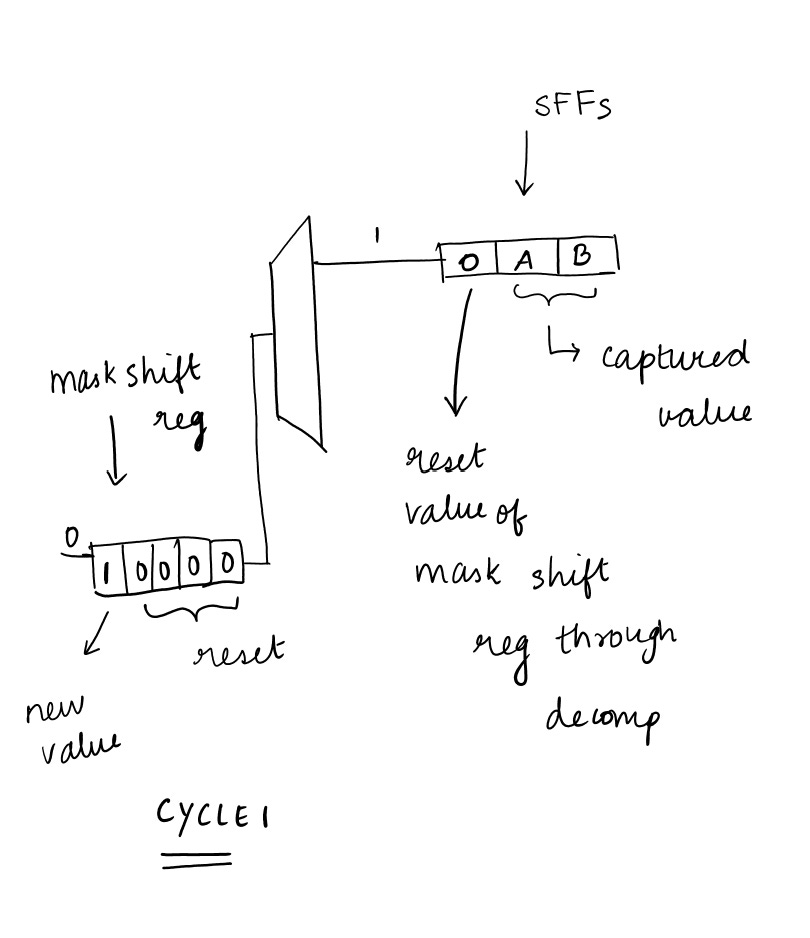 SFFs
1
0 A B
captured
value
mask shift
reg
reset
value of
mask shift
reg through
decomp
0
1 0 0 0 0
reset
new
value
CYCLE 1